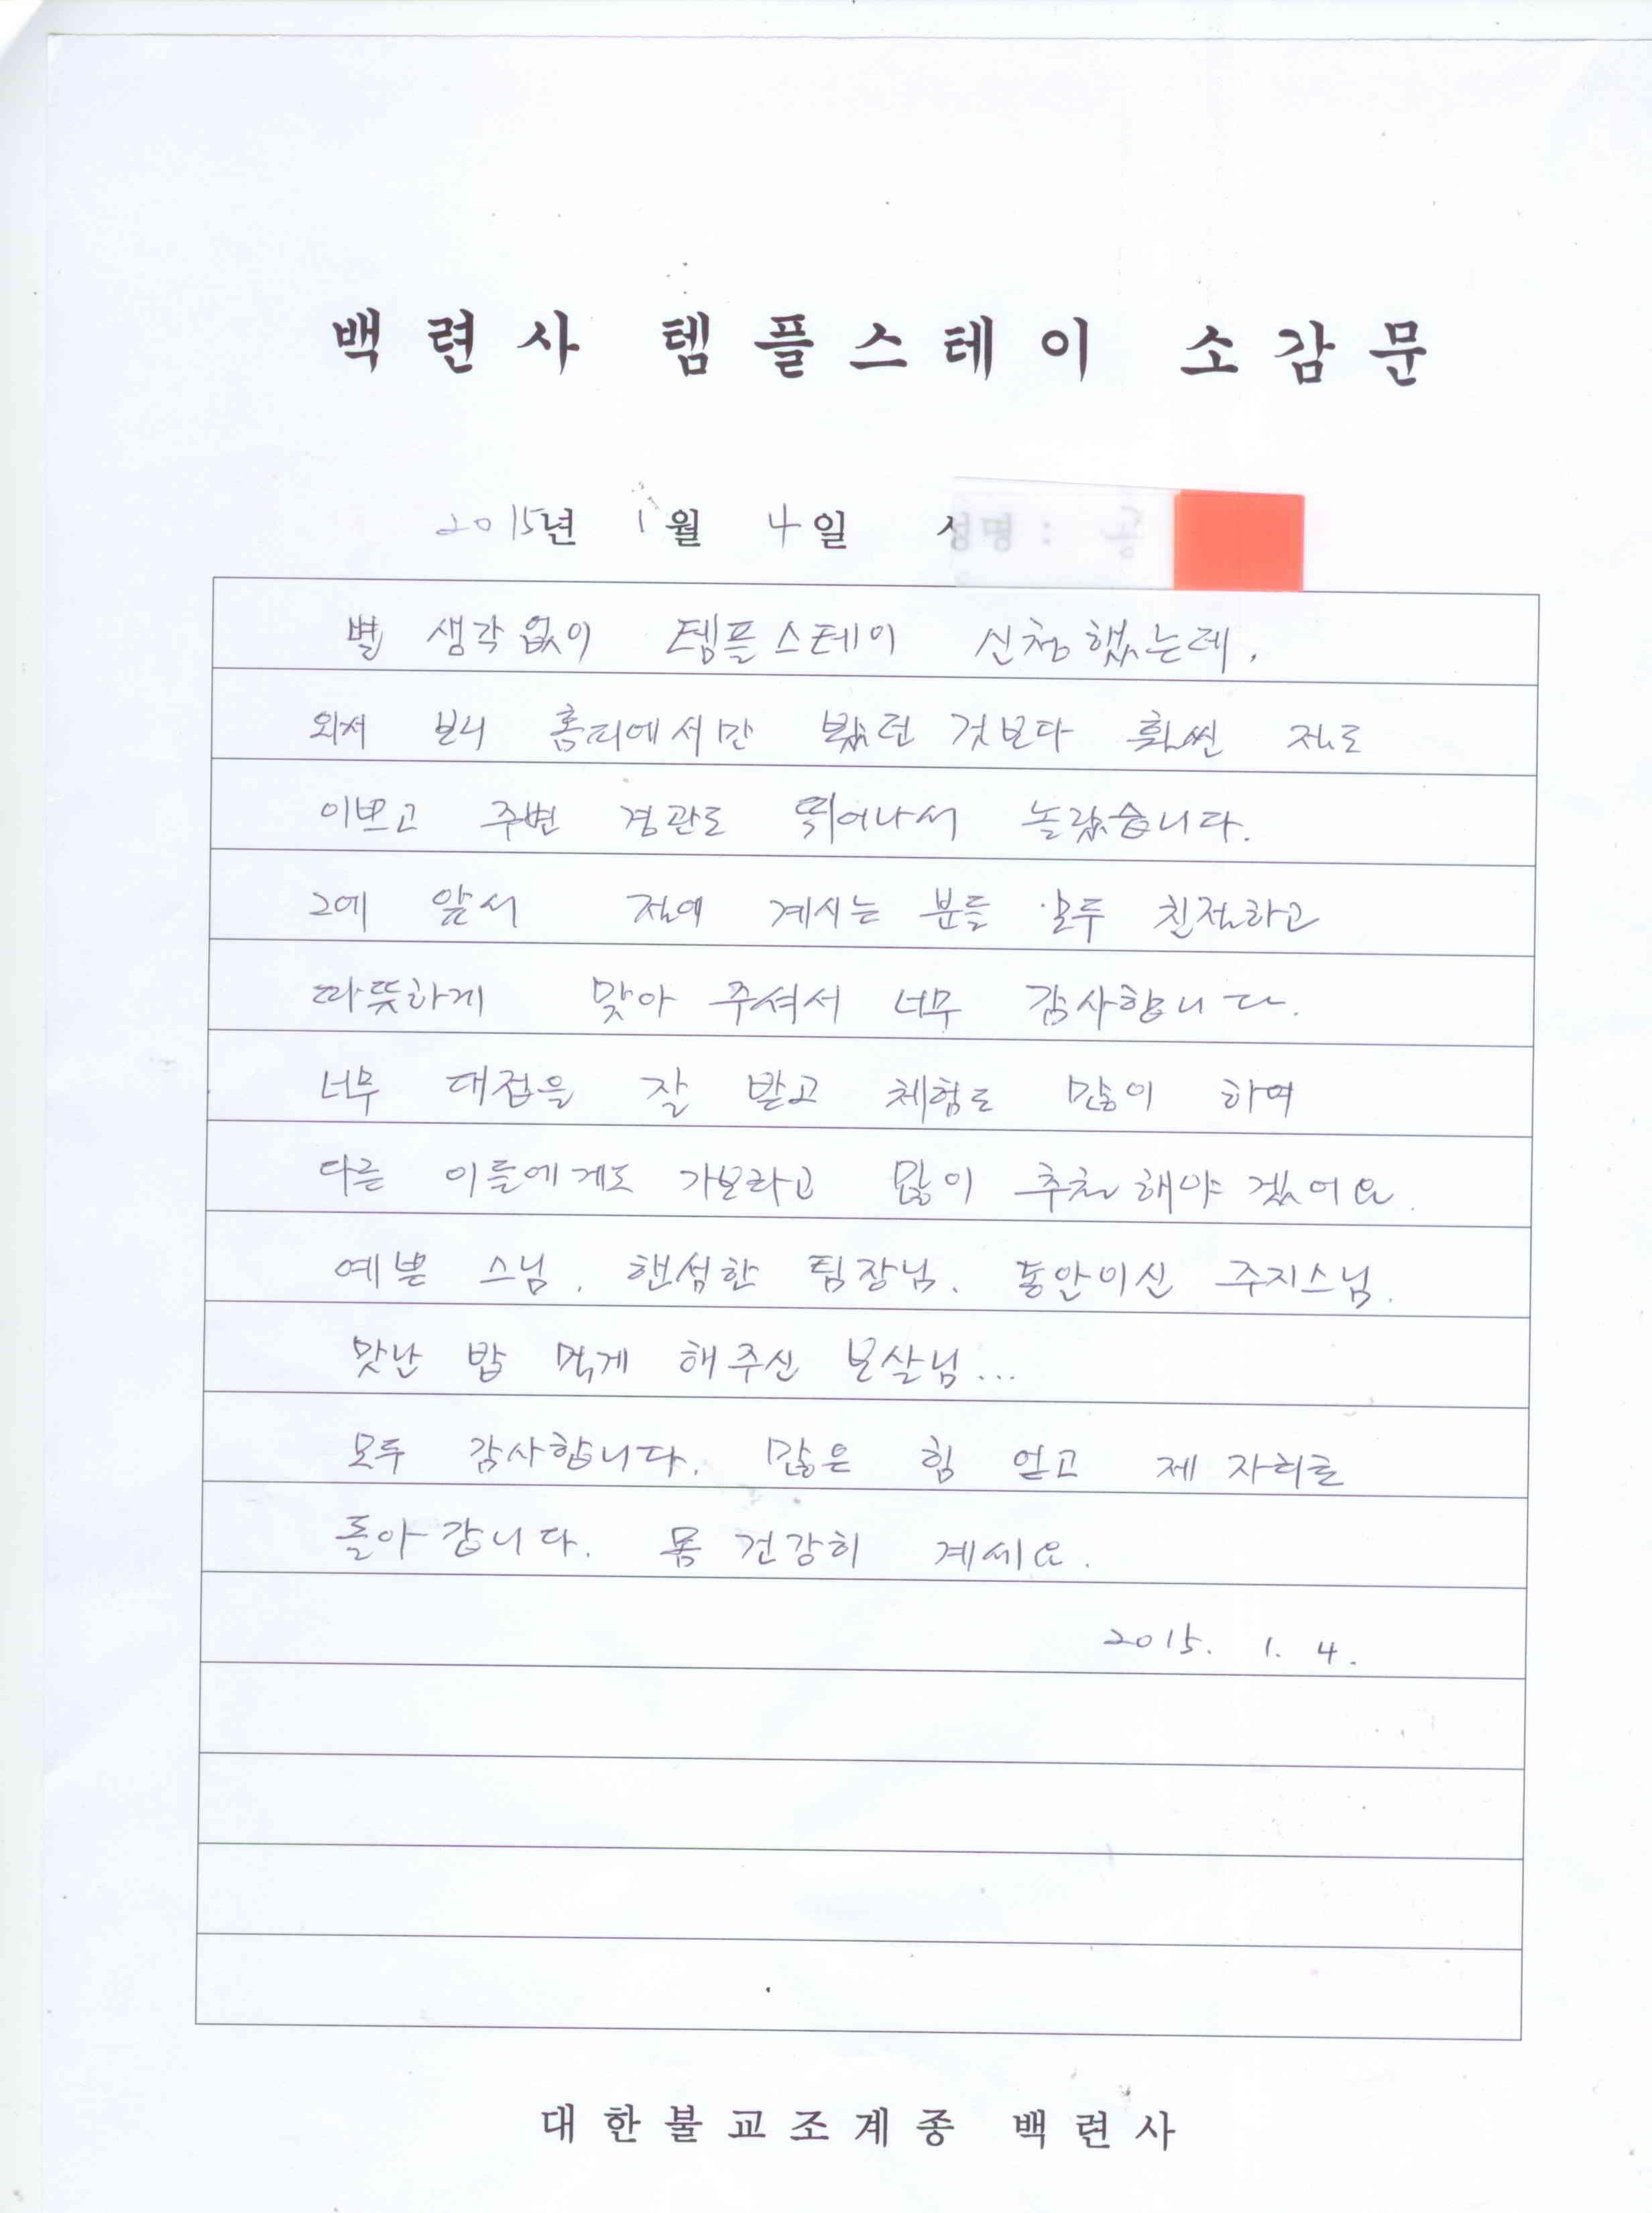 백련사 템플스테이 소감문
2015년 1월 4일 성명 : 공
별 생각없이 템플스테이 신청했는데,
와서 보니 홈피에서만 봤던 것보다 훨씬 절도
이쁘고 주변 경관도 뛰어나서 놀랐습니다.
그에 앞서 절에 계시는 분들 모두 친절하고
따뜻하게 맞아 주셔서 너무 감사합니다.
너무 대접을 잘 받고 체험도 많이 하여
다른 이들에게도 가보라고 많이 추천해야겠어요.
예쁜 스님, 핸섬한 팀장님, 동안이신 주지스님,
맛난 밥 먹게 해주신 보살님...
모두 감사합니다. 많은 힘 얻고 제 자리로
돌아갑니다. 몸 건강히 계세요.
2015. 1. 4.
대한불교조계종 백련사